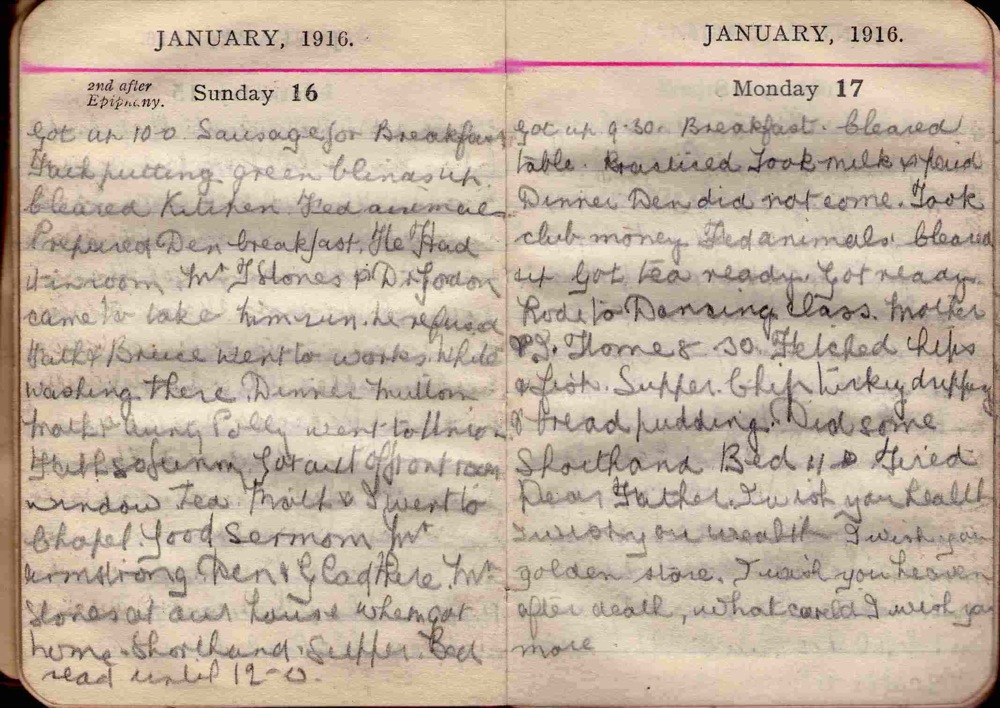 JANUARY, 1916.
2nd after
Epiphany.
Sunday 16
Got up 10-0 Sausage for Breakfast
Fath putting green blinds up
Cleared Kitchen Fed animals
Prepared Den breakfast. He Had
it in room Mr Stones & Dr
came to take him run. he refused
Fath & Bruce went to works White
washing there Dinner Mutton
Moth & Aunty Polly went to Union
Fath Got out of front room
window Tea Moth & I went to
Chapel Good Sermon Mr
Armstrong Den & Glad there Mr
Stones at our house when got
home. Shorthand. Supper. Bed
read until 12-0.
JANUARY, 1916.
Monday 17
Got up 9.30. Breakfast. Cleared
table. Practiced Took milk & paid
Dinner Den did not come. Took
club money Fed animals. Cleared
up Got tea ready. Got ready.
Rode to Dancing Class. Mother
& I. Home 8 30. Fetched chips
& Fish. Supper Chip turkey dripping
& bread pudding. Did some
Shorthand Bed 11 0 Tired
Dear Father. I wish you health
I wish you wealth I wish you
golden store. I wish you heaven
after death, what could I wish you
more